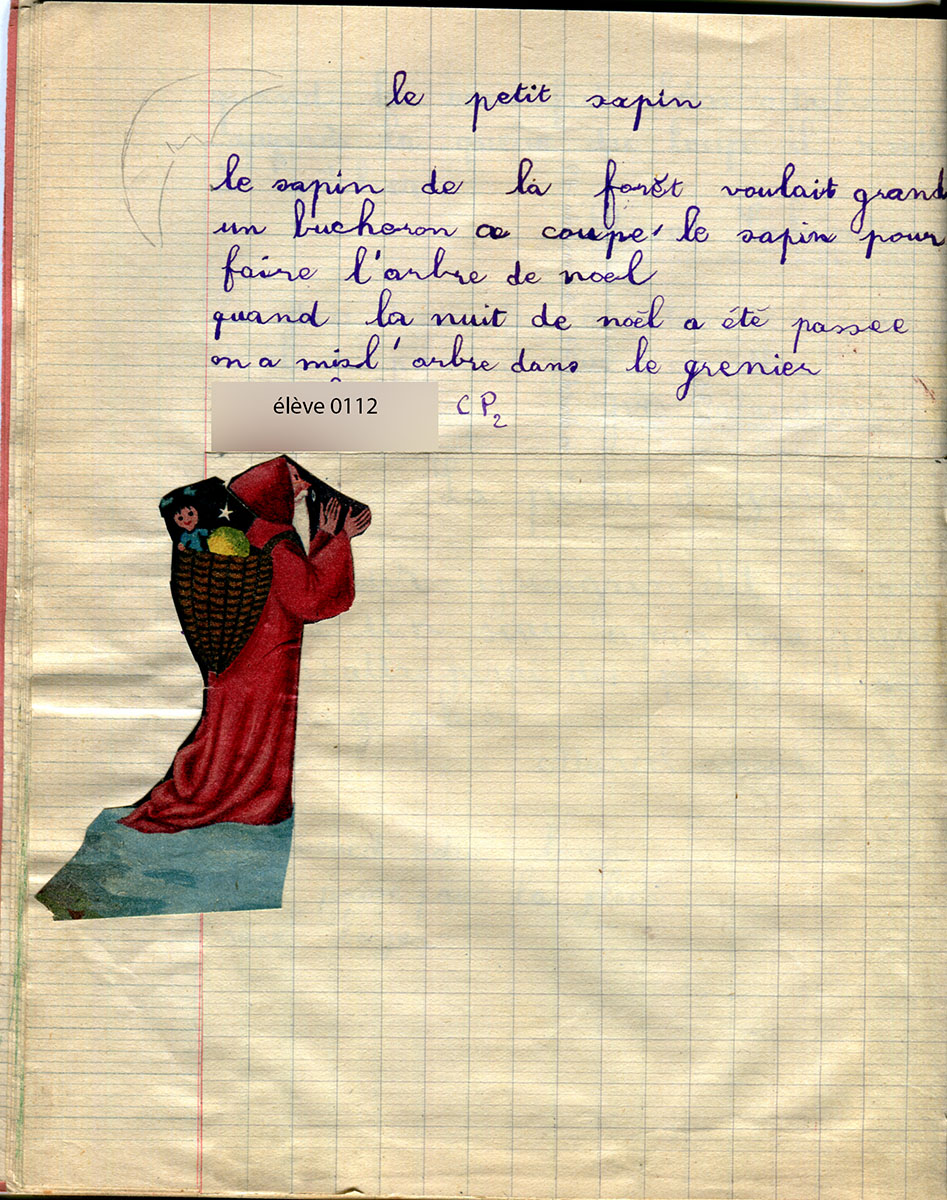 le petit sapin
le sapin de la forêt voulait grand
un bucheron a coupé le sapin pour
faire l'arbre de noel
quand la nuit de noël a été passee
on a misl'arbre dans le grenier
élève 0112 CP2